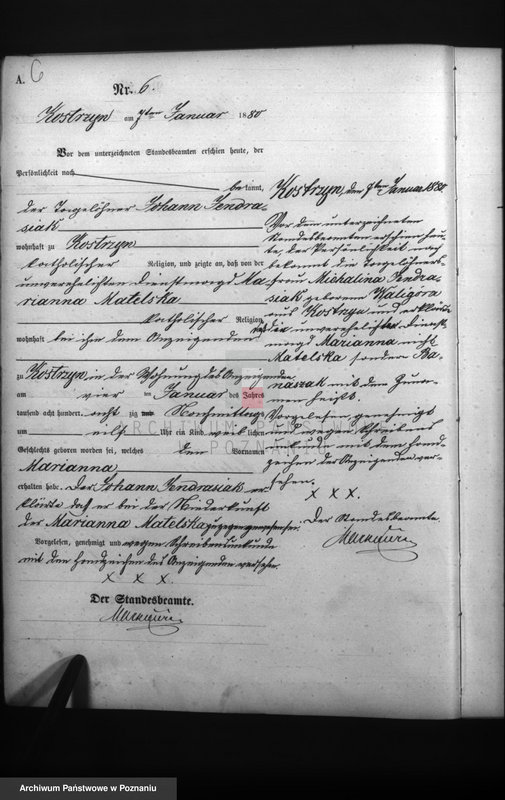 A. 6
Nr. 6.
Kostrzyn am 7ten Januar 1880
Vor dem unterzeichneten Standesbeamten erschien heute, der
Persönlichkeit nach
bekannt,
der Tagelöhner Johann Jendra-
siak
wohnhaft zu Kostrzyn
katholischer Religion, und zeigte an, daß von der
unverehelichten Dienstmagd Ma-
rianna Matelska
katholischer Religion,
wohnhaft bei ihm dem Anzeigenden
zu Kostrzyn in der Wohnung des Anzeigenden
am vier ten Januar des Jahres
tausend acht hundert acht zig Nachmittags
um elf Uhr ein Kind weiblichen
Geschlechts geboren worden sei, welches den Vornamen
Marianna
erhalten habe. Der Johann Jendrasiak er-
klärte daß er bei der Niederkunft
der Marianna Matelska zugegen gewesen sei.
Vorgelesen, genehmigt und wegen Schreibensunkunde
mit dem Handzeichen des Anzeigenden versehen.
x x x.
Der Standesbeamte.
Kostrzyn, den 7ten Januar 1880
Vor dem unterzeichneten
Standesbeamten erschien heu-
te, der Persönlichkeit nach
bekannt die Tagelöhners-
frau Michalina Jendra-
siak geborene Waligóra
aus Kostrzyn und erklärte
daß die unverehelichte Dienst-
magd Marianna nicht
Matelska sondern Ba-
naszak mit dem Zuna-
men heißt.
Vorgelesen genehmigt
und wegen Schreibens-
unkunde mit dem Hand-
zeichen der Anzeigenden ver-
sehen.
x x x.
Der Standesbeamte
ARCHIWUM PAŃSTWOWE
W POZNANIU
Archiwum Państwowe w Poznaniu